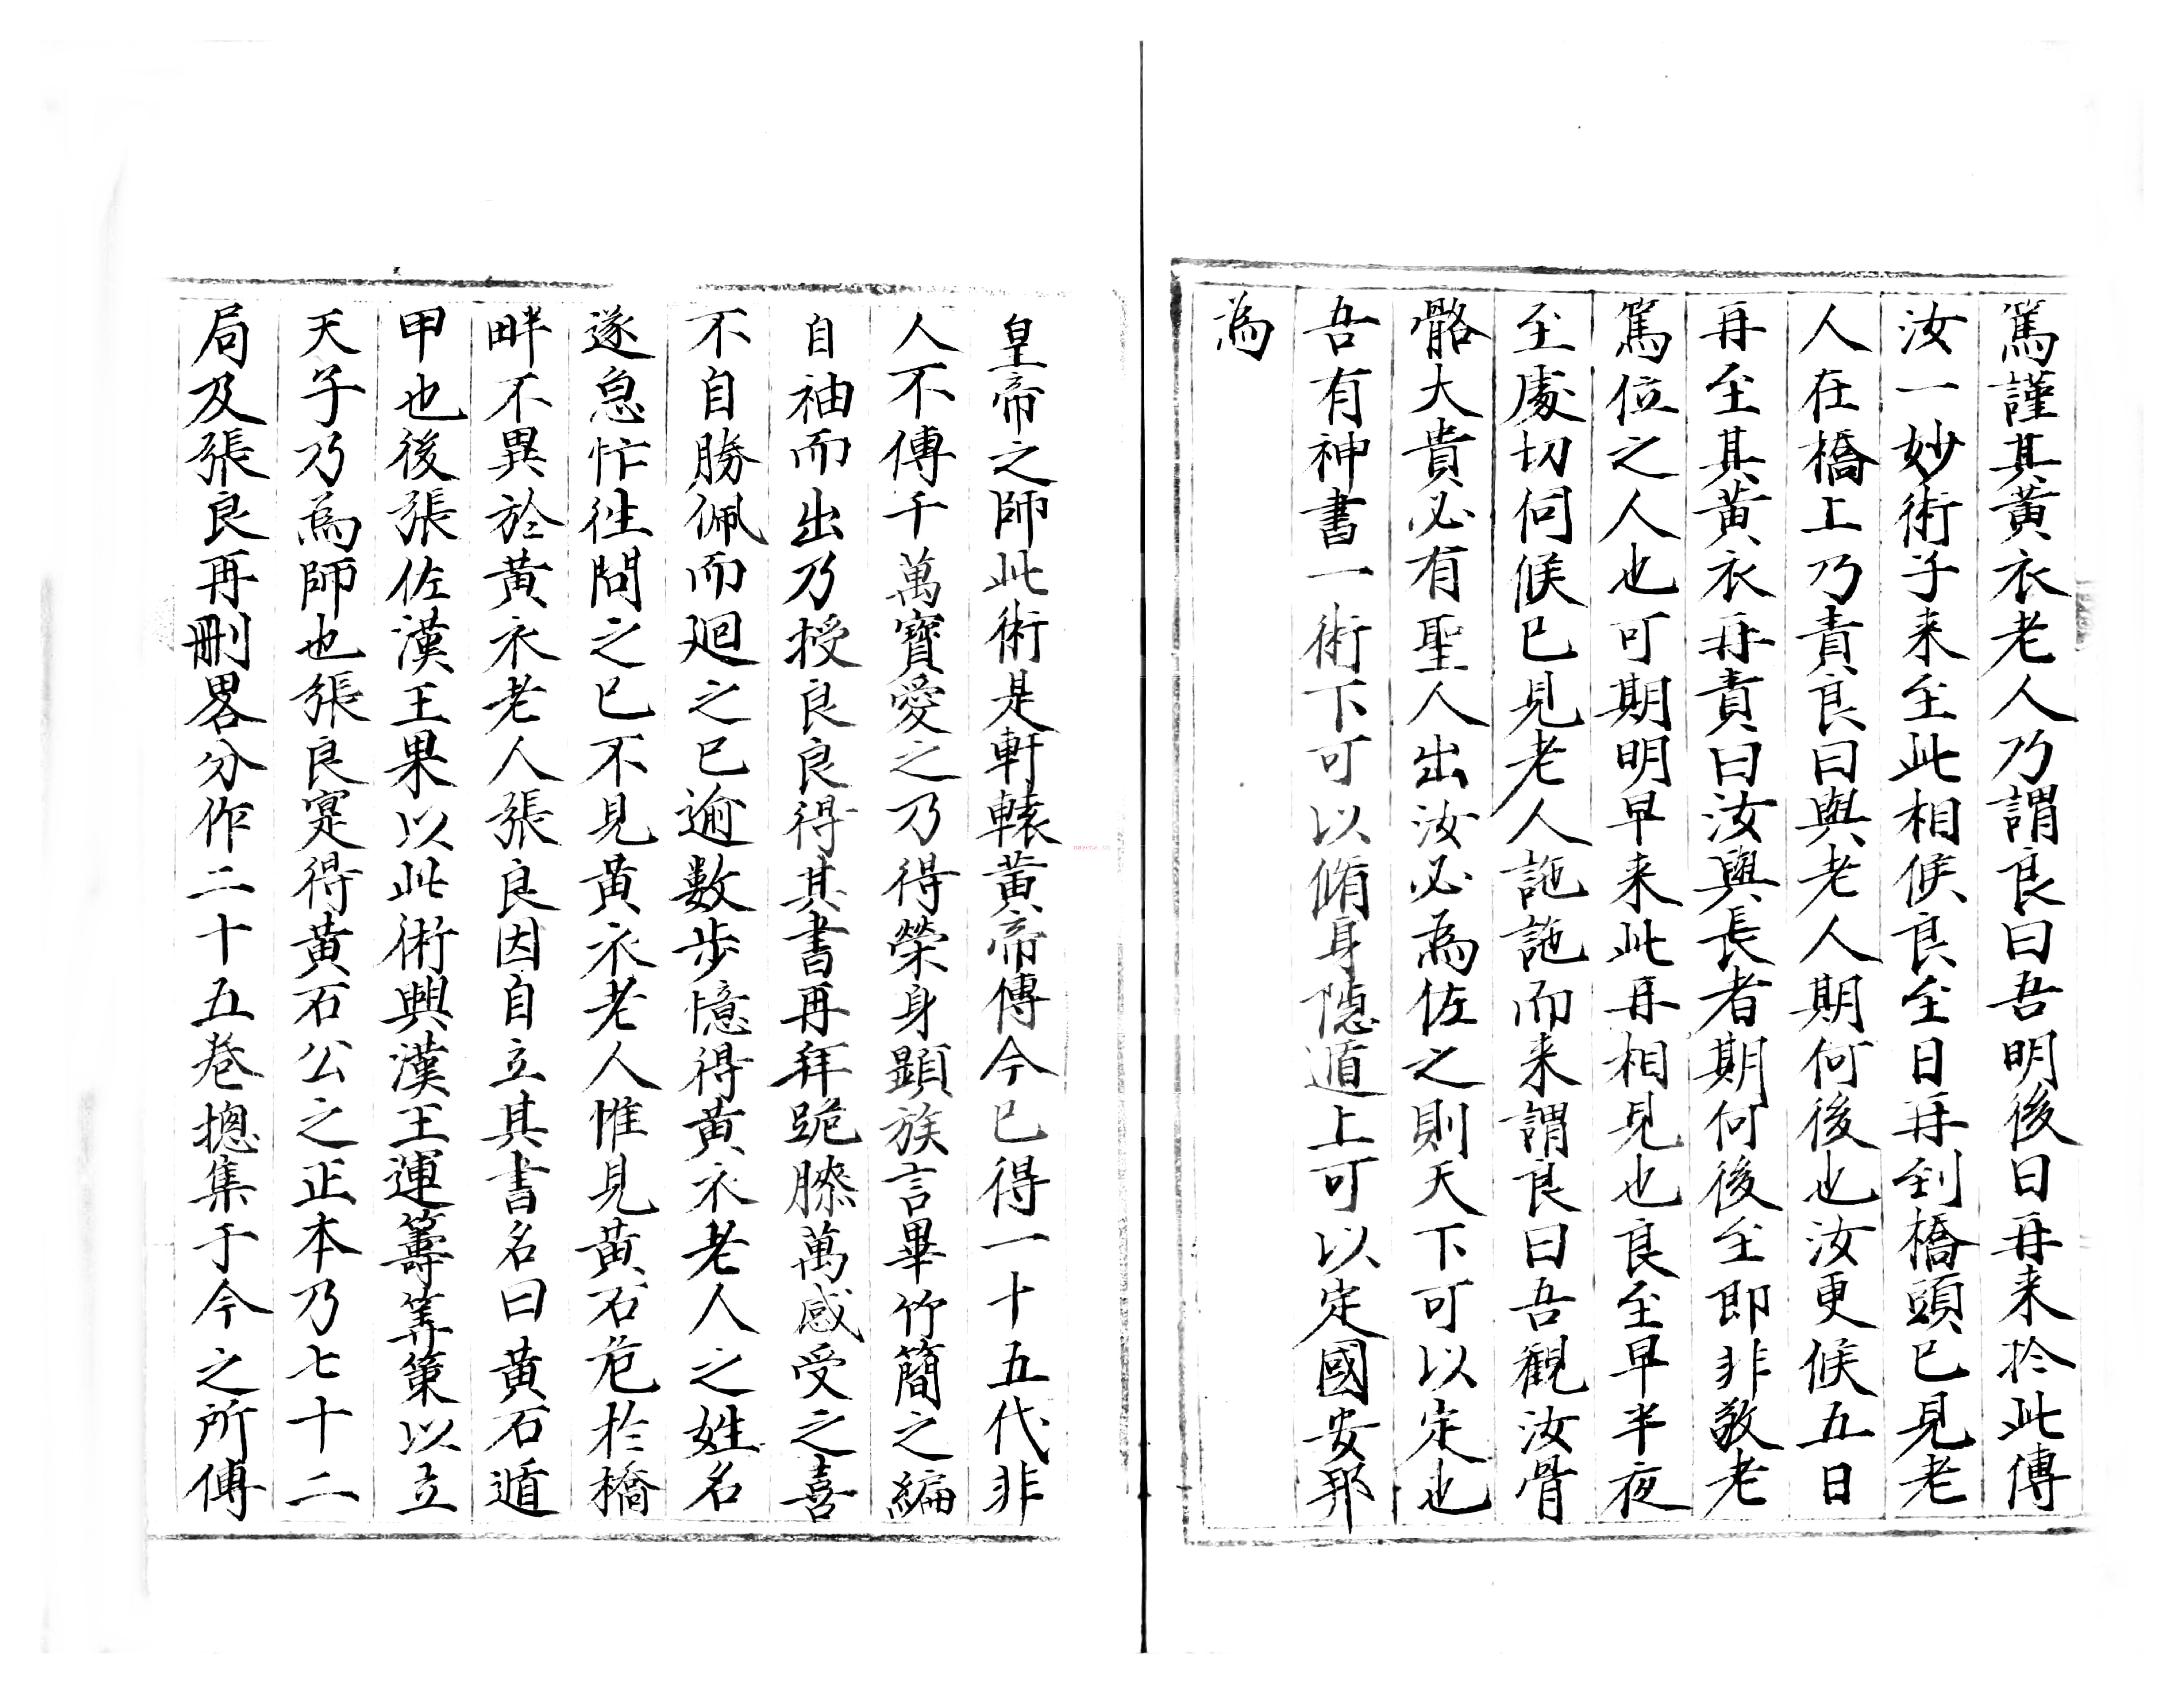 篤謹其黃衣老人乃謂良曰吾明後日再来於此傳
汝一妙術子来至此相候良至日再到橋頭已見老
人在橋上乃責良曰與老人期何後也汝更候五日
再至其黃衣再責曰汝與長者期何後至即非敬老
篤位之人也可期明早来此再相見也良至早半夜
至處切伺候已見老人訑訑而来謂良曰吾觀汝骨
骼大貴必有聖人出汝必為佐之則天下可以定也
吾有神書一術下可以脩身隱遁上可以定國安邦
為
皇帝之師此術是軒轅黃帝傳今已得一十五代非
人不傳千萬寶愛之乃得榮身顯族言畢竹簡之編
自袖而出乃授良良得其書再拜跪膝萬感受之喜
不自勝佩而廻之已逾數步憶得黃衣老人之姓名
遂怱忙往問之已不見黃衣老人惟見黃石危於橋
畔不異於黃衣老人張良因自立其書名曰黃石遁
甲也後張佐漢王果以此術興漢王運籌筭策以立
天子乃為師也張良寔得黃石公之正本乃七十二
局及張良再刪畧分作二十五卷揔集于今之所傳
nayona.cn